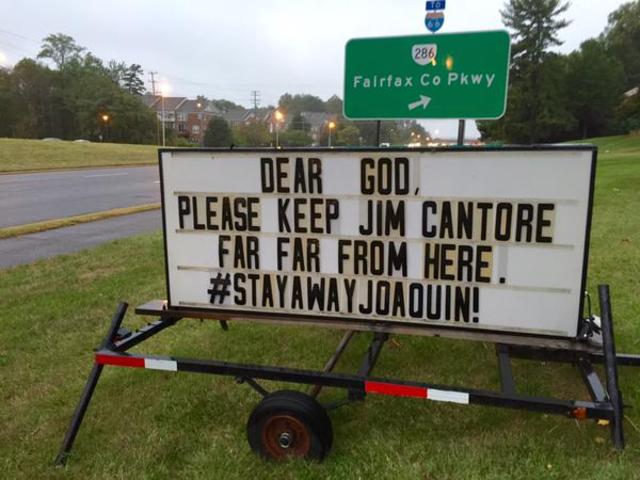 TO
66
286
Fairfax Co Pkwy
DEAR GOD,
PLEASE KEEP JIM CANTORE
FAR FAR FROM HERE.
#STAYAWAYJOAQUIN!